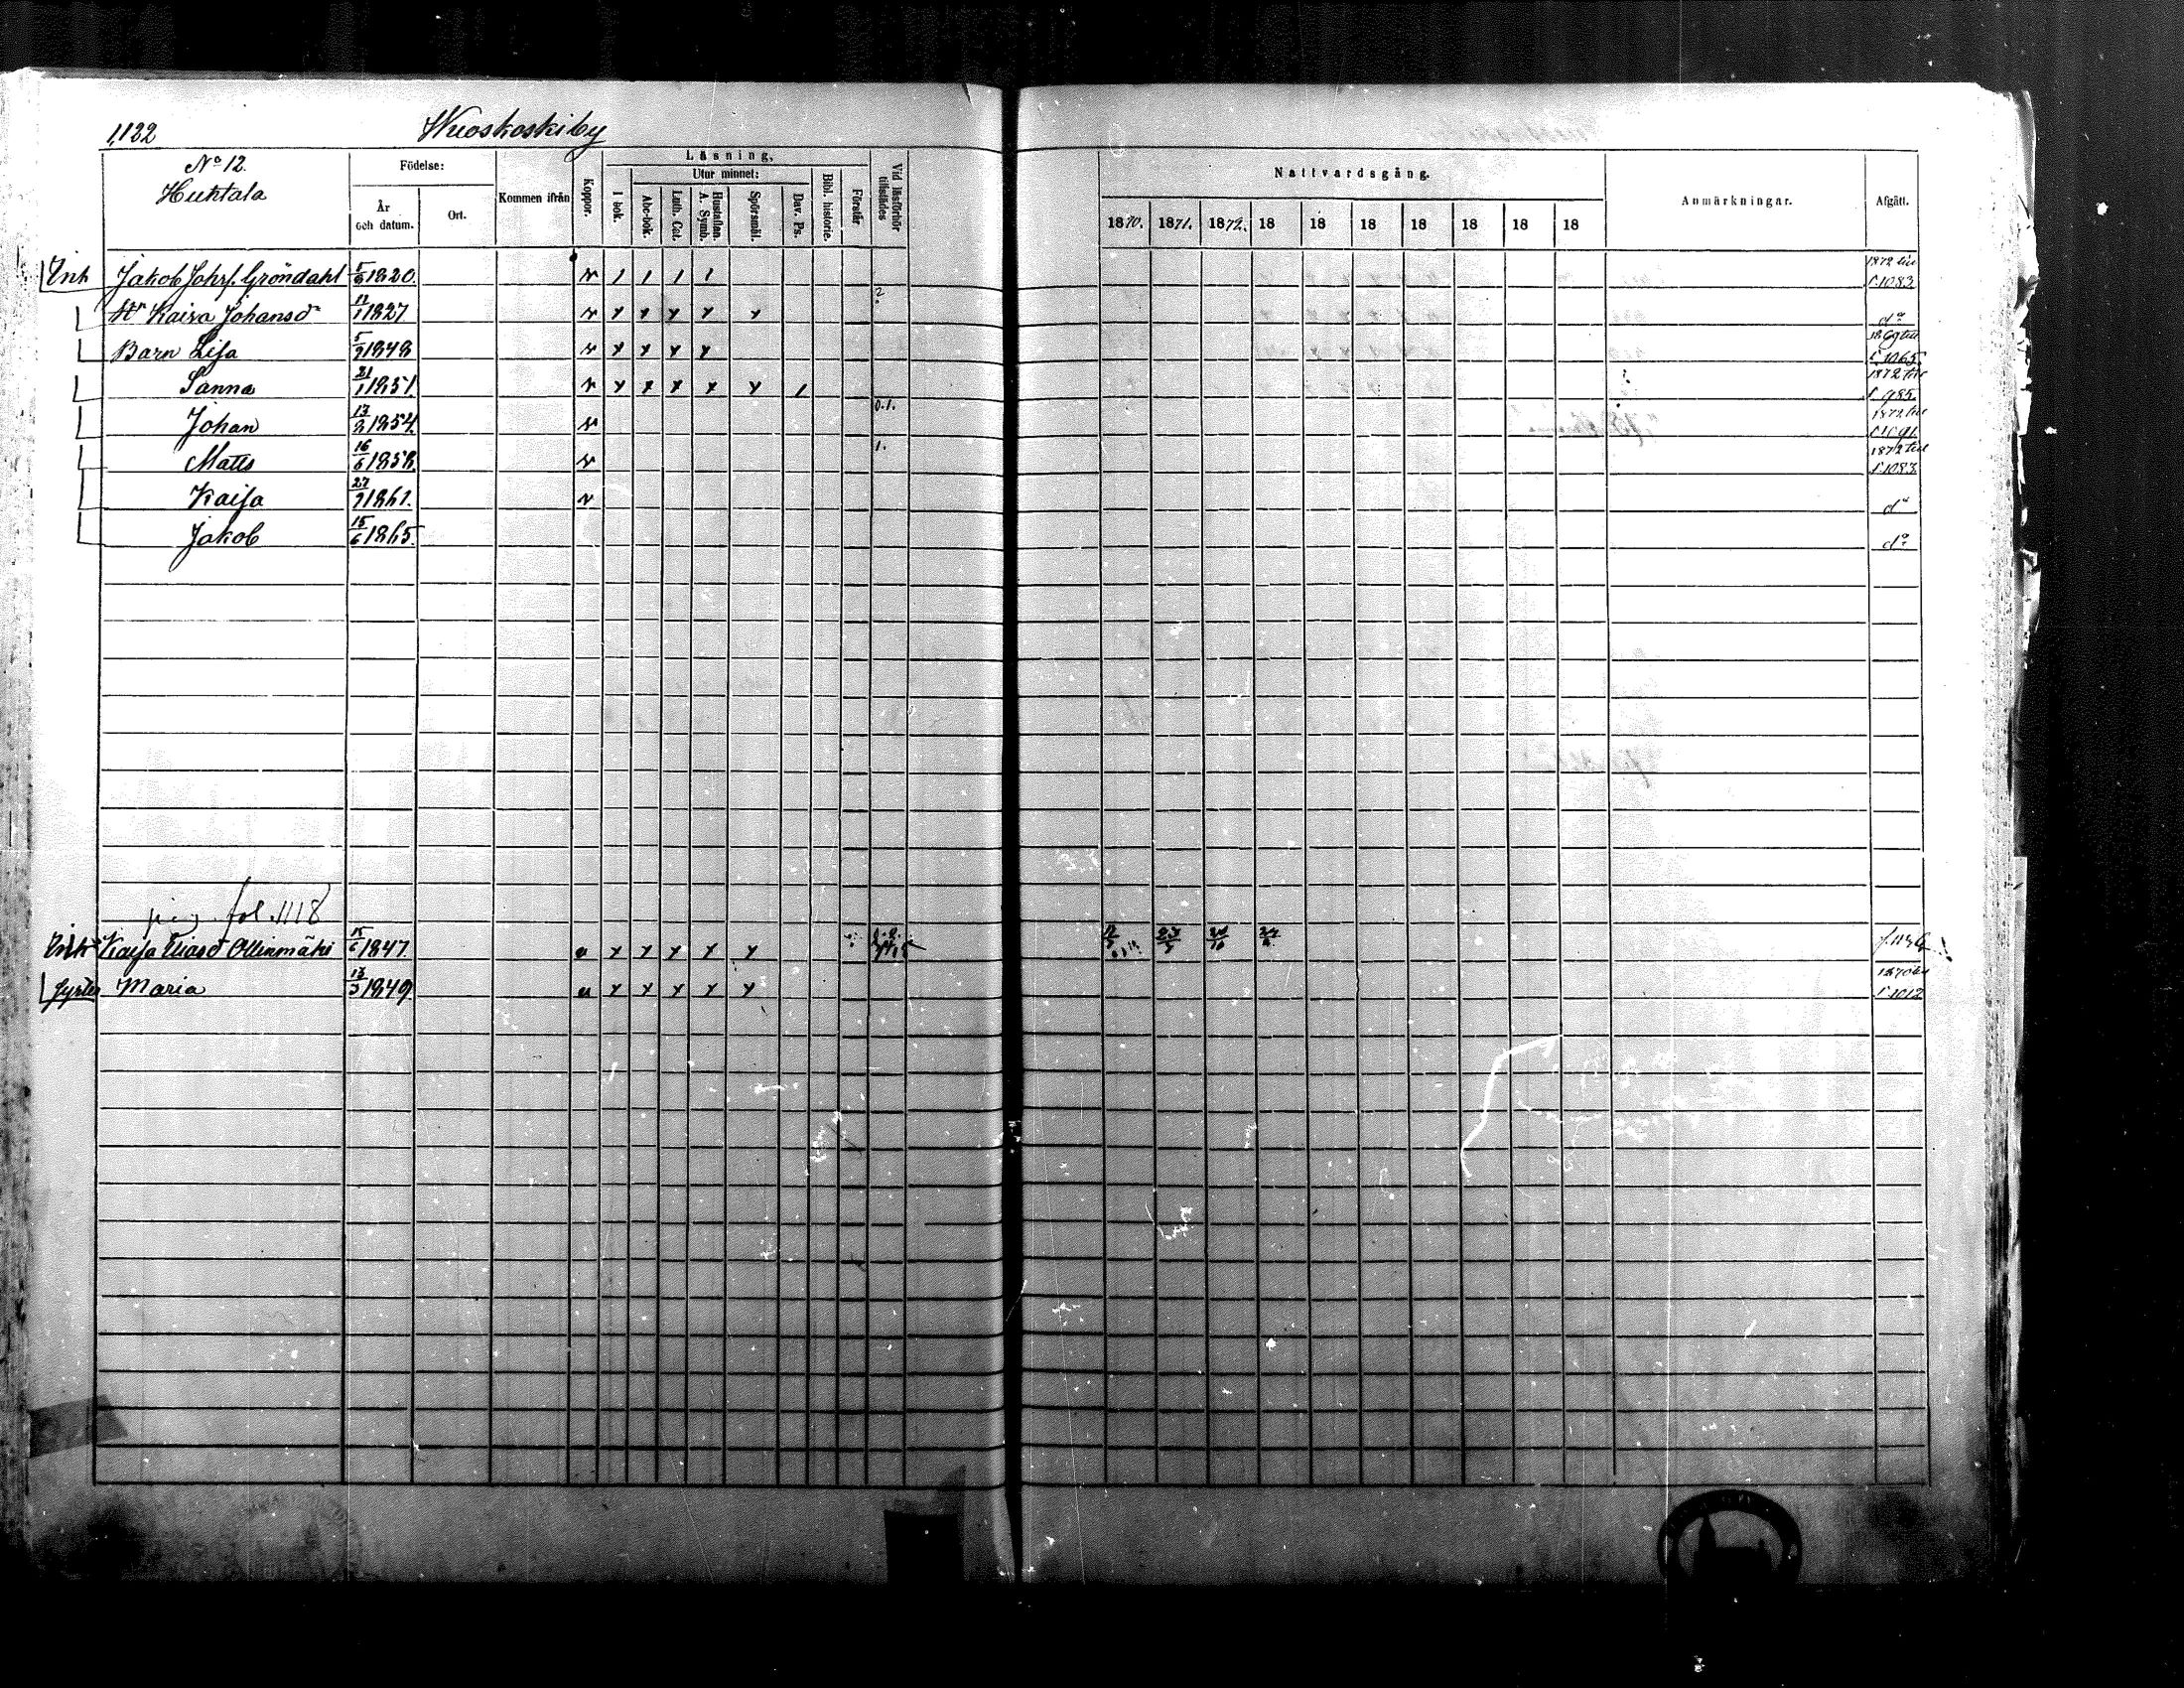 1122 Wuoskoski by
No 12.
Huhtala
Födelse:
År och datum.
Ort.
Kommen ifrån
Koppor.
Läsning,
I bok.
Utur minnet:
Abc-bok.
Luth. Cat.
Hustaflan. A. Symb.
Spörsmål.
Dav. Ps.
Bibl. historie.
Förstår
Vid läsförhör tillstädes
Nattvardsgång.
1870. 1871. 1872. 18 18 18 18 18 18 18
Anmärkningar.
Afgått.
Inh Jakob Johs. Gröndahl 5/9 1820. v 1 1 1 1 1872 till f. 1083
Hu Kaisa Johansdr 11/1 1827 v x x x x x 2 do
Barn Lisa 5/9 1848 v x x x x 1869 till f. 1065.
Sanna 21/1 1851. v x x x x x 1 1872 till f. 985.
Johan 13/2 1854. v 0.1. 1872 till
Matts 16/6 1858. v 1. 1872 till f. 1083.
Kaisa 27/7 1861. v do
Jakob 15/6 1865. do
fol. 1118
Inh Kaisa Eliasd Ollinmäki 15/6 1847. u x x x x x
Syster Maria 13/3 1849. u x x x x x 1870 till f. 1012